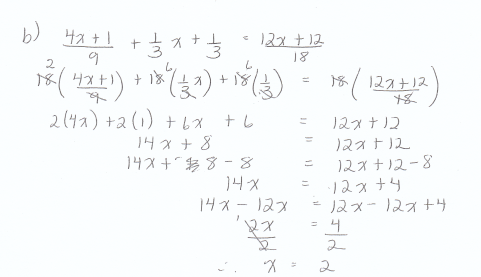 b) (4x+1)/9 + 1/3 x + 1/3 = (12x+12)/18
18 2 ( (4x+1)/9 ) + 18 6 ( 1/3 x ) + 18 6 ( 1/3 ) = 18 ( (12x+12)/18 )
2(4x) + 2(1) + 6x + 6 = 12x+12
14x + 8 = 12x+12
14x + 8 - 8 = 12x+12-8
14x = 12x+4
14x - 12x = 12x - 12x + 4
1 2x/2 = 4/2
∴ x = 2